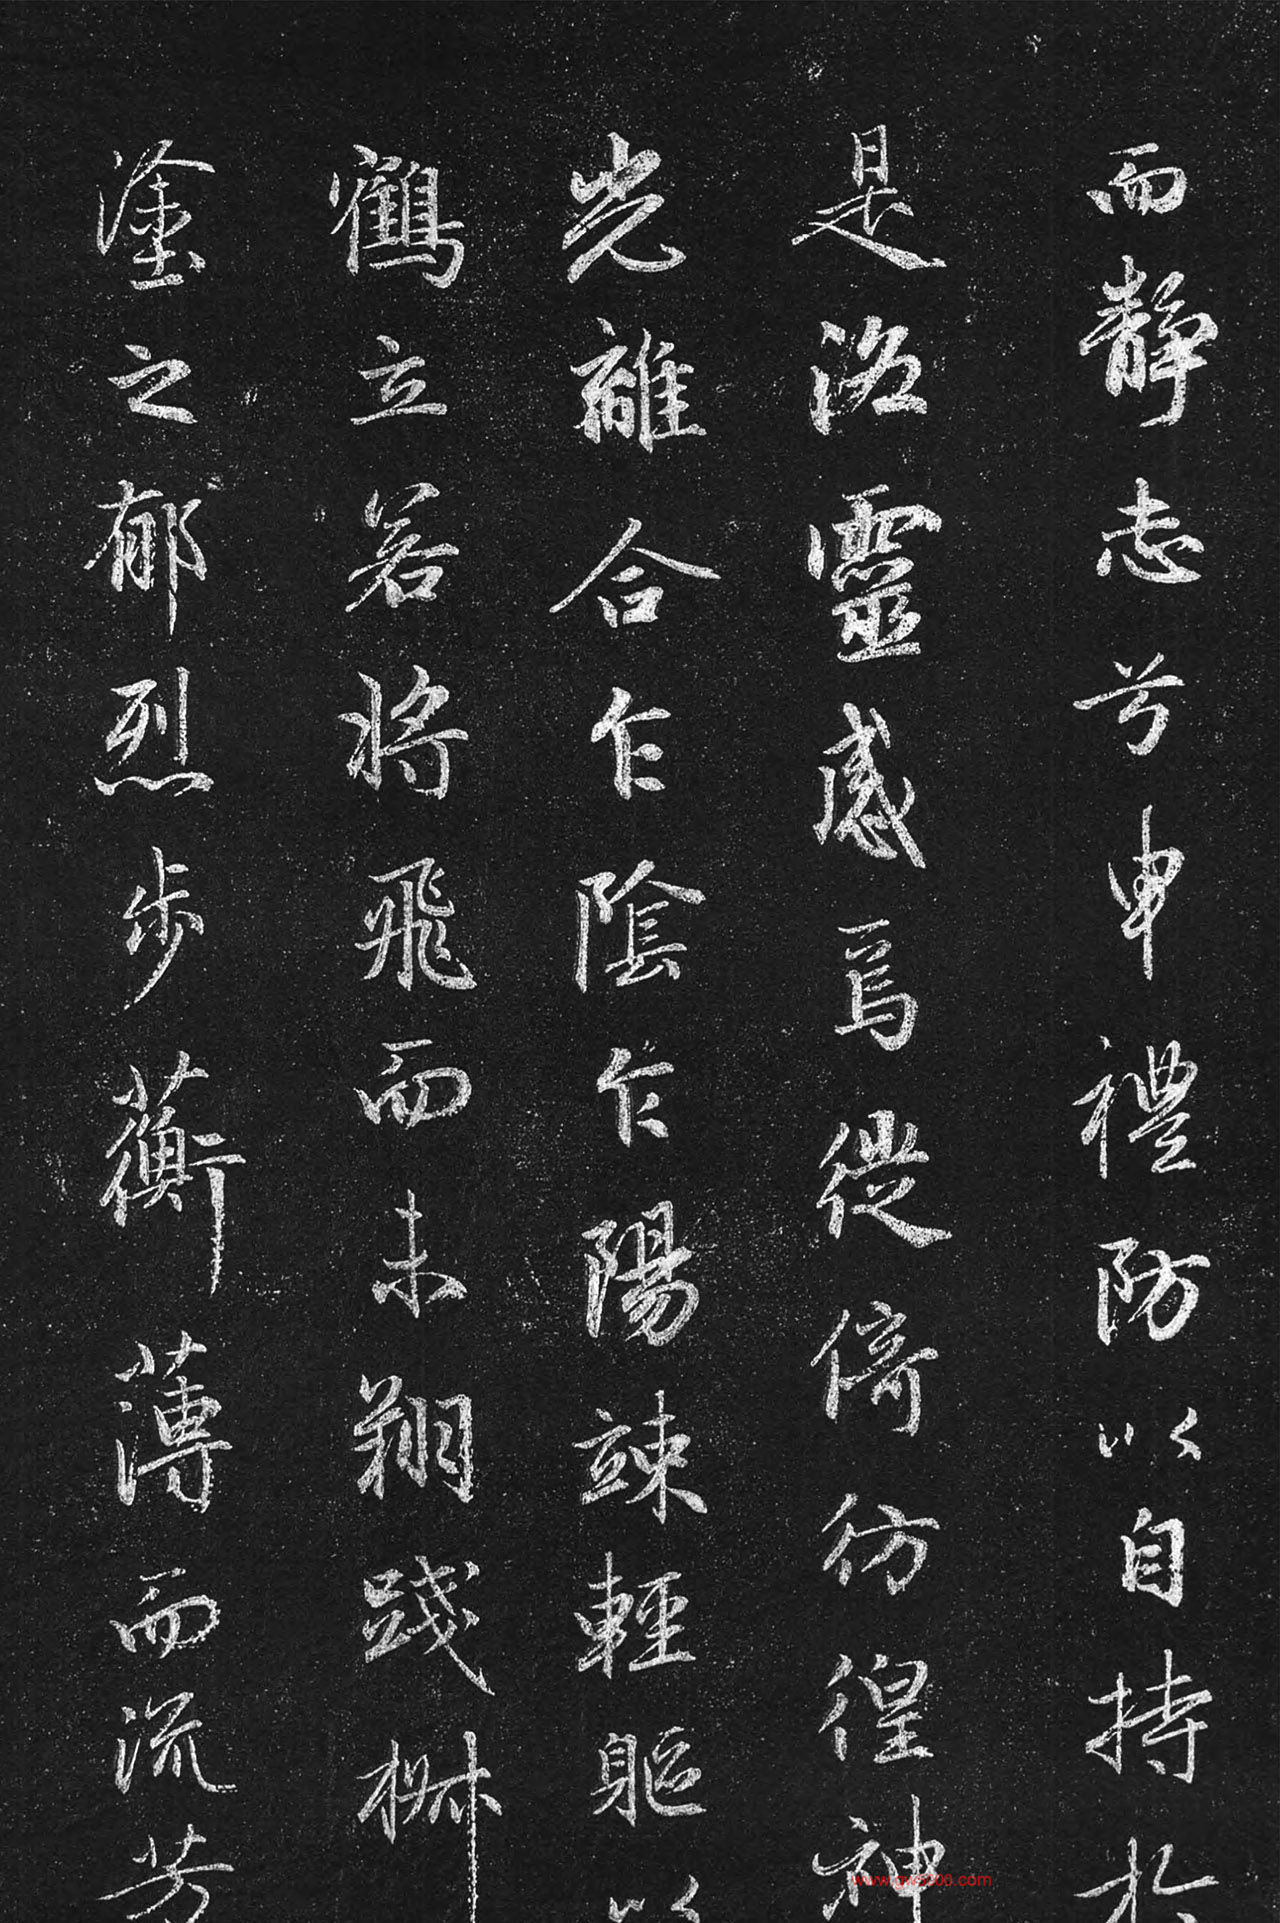 而靜志兮申禮防以自持於
是洛靈感焉從倚彷徨神
光離合乍陰乍陽竦輕軀以
鶴立若將飛而未翔踐椒
塗之郁烈步蘅薄而流芳
www.gws600.com